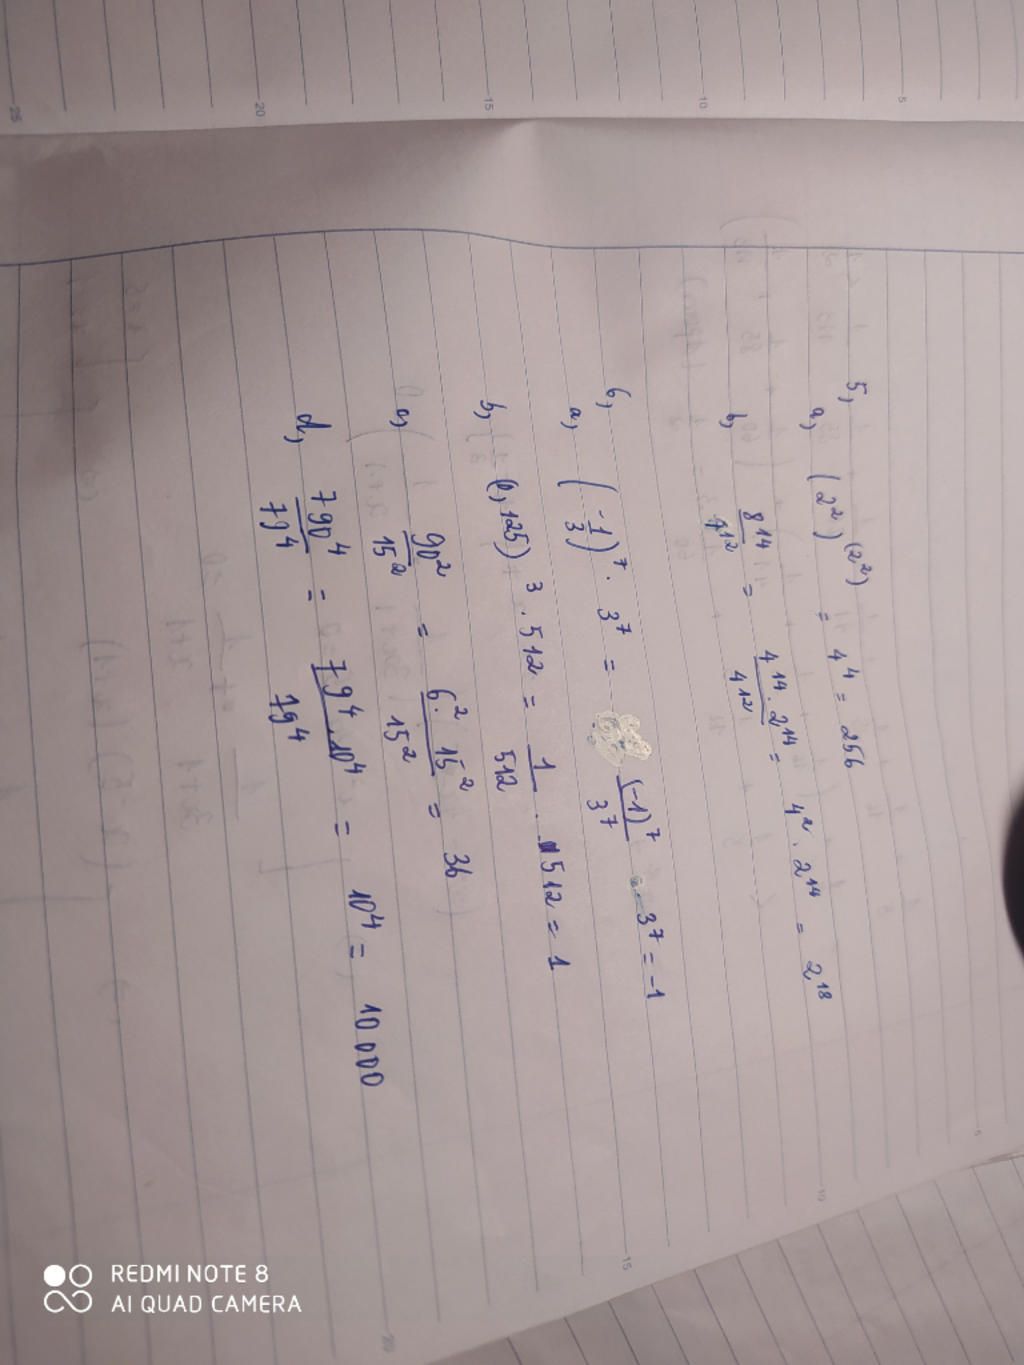 5,
a, (2²)^(2²) = 4⁴ = 256
b, 8¹⁴/4¹² = 4¹⁴.2¹⁴/4¹² = 4².2¹⁴ = 2¹⁸
6,
a, (-1/3)⁷ . 3⁷ = (-1)⁷/3⁷ . 3⁷ = -1
b, (0,125)³ . 512 = 1/512 . 512 = 1
c, 90²/15² = 6².15²/15² = 36
d, 790⁴/79⁴ = 79⁴.10⁴/79⁴ = 10⁴ = 10000
REDMI NOTE 8
AI QUAD CAMERA